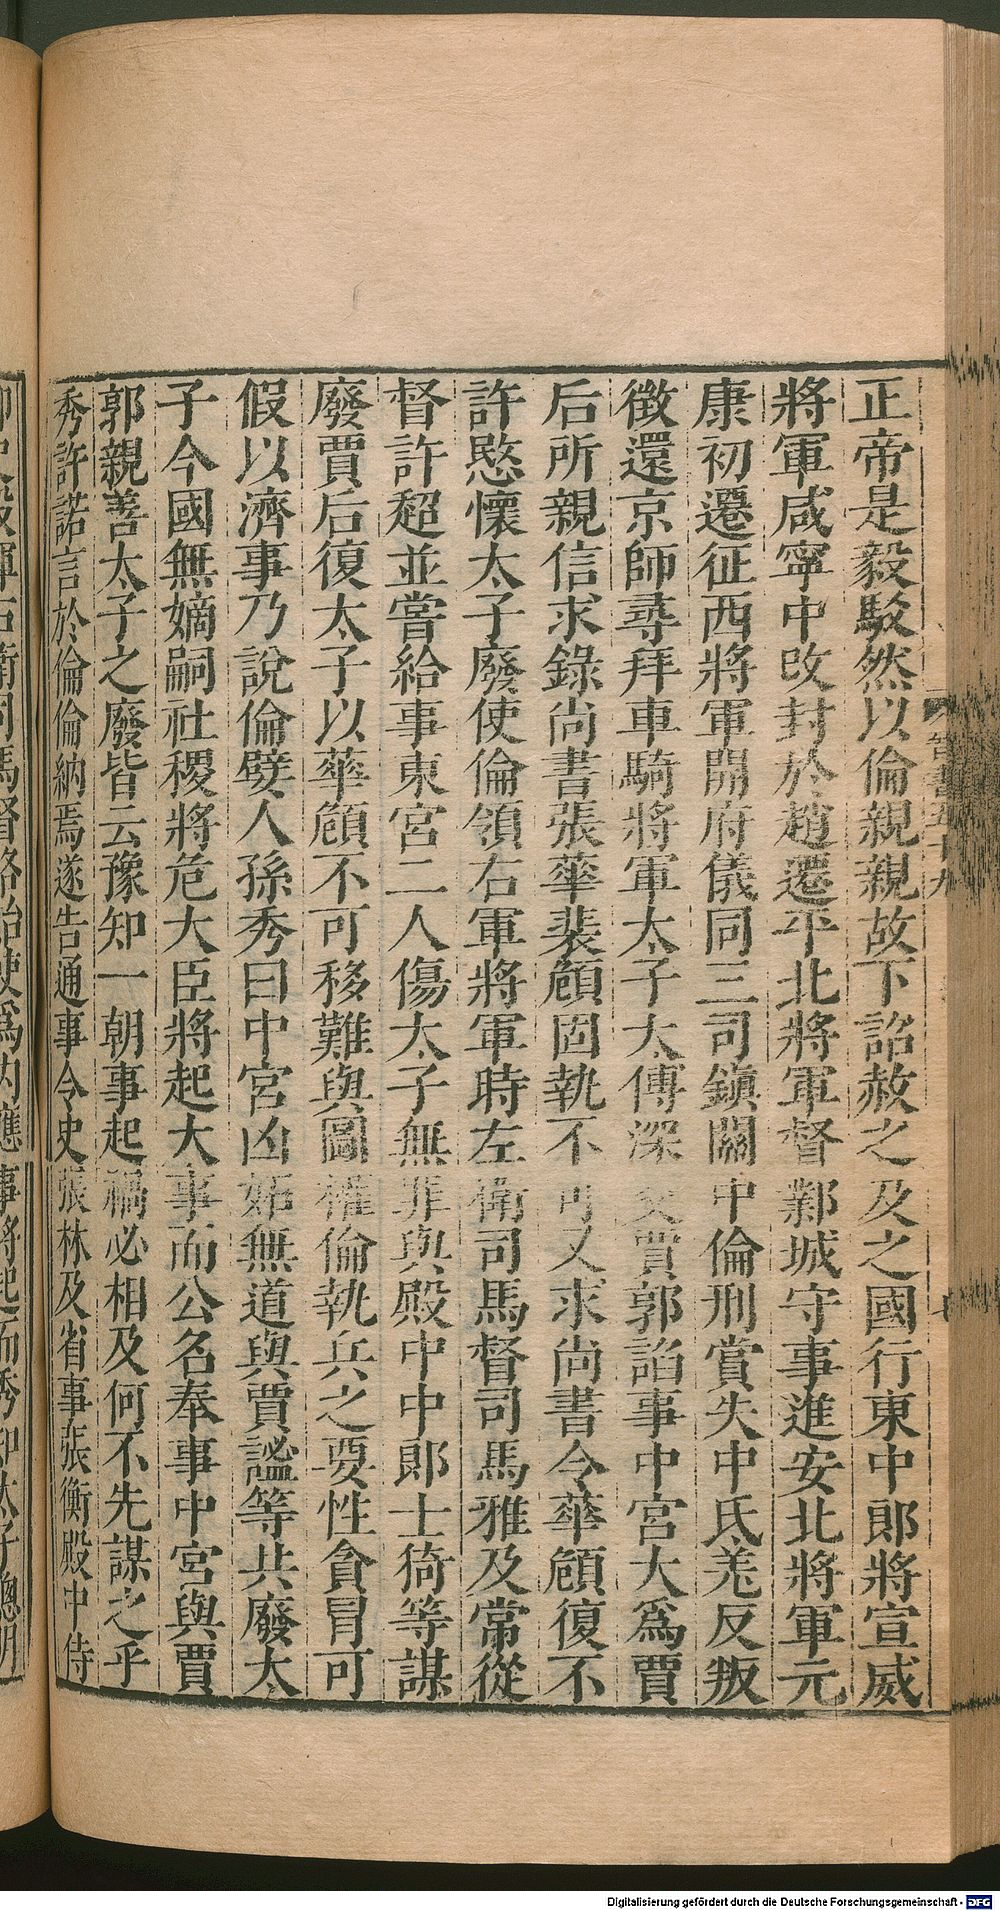 正帝是毅駮然以倫親親故下詔赦之及之國行東中郎將宣威
將軍咸寧中改封於趙遷平北將軍督鄴城守事進安北將軍元
康初遷征西將軍開府儀同三司鎮關中倫刑賞失中氐羌反叛
徵還京師尋拜車騎將軍太子太傅深交賈郭諂事中宮大為賈
后所親信求錄尚書張華裴頠固執不可又求尚書令華頠復不
許愍懷太子廢使倫領右軍將軍時左衛司馬督司馬雅及常從
督許超並嘗給事東宮二人傷太子無罪與殿中中郎士猗等謀
廢賈后復太子以華頠不可移難與圖權倫執兵之要性貪冒可
假以濟事乃說倫嬖人孫秀曰中宮凶妬無道與賈謐等共廢太
子今國無嫡嗣社稷將危大臣將起大事而公名奉事中宮與賈
郭親善太子之廢皆云豫知一朝事起禍必相及何不先謀之乎
秀許諾言於倫倫納焉遂告通事令史張林及省事張衡殿中侍
晉書五十九
司馬督路始使為內應事將起而秀知太子聰明
Digitalisierung gefördert durch die Deutsche Forschungsgemeinschaft - DFG